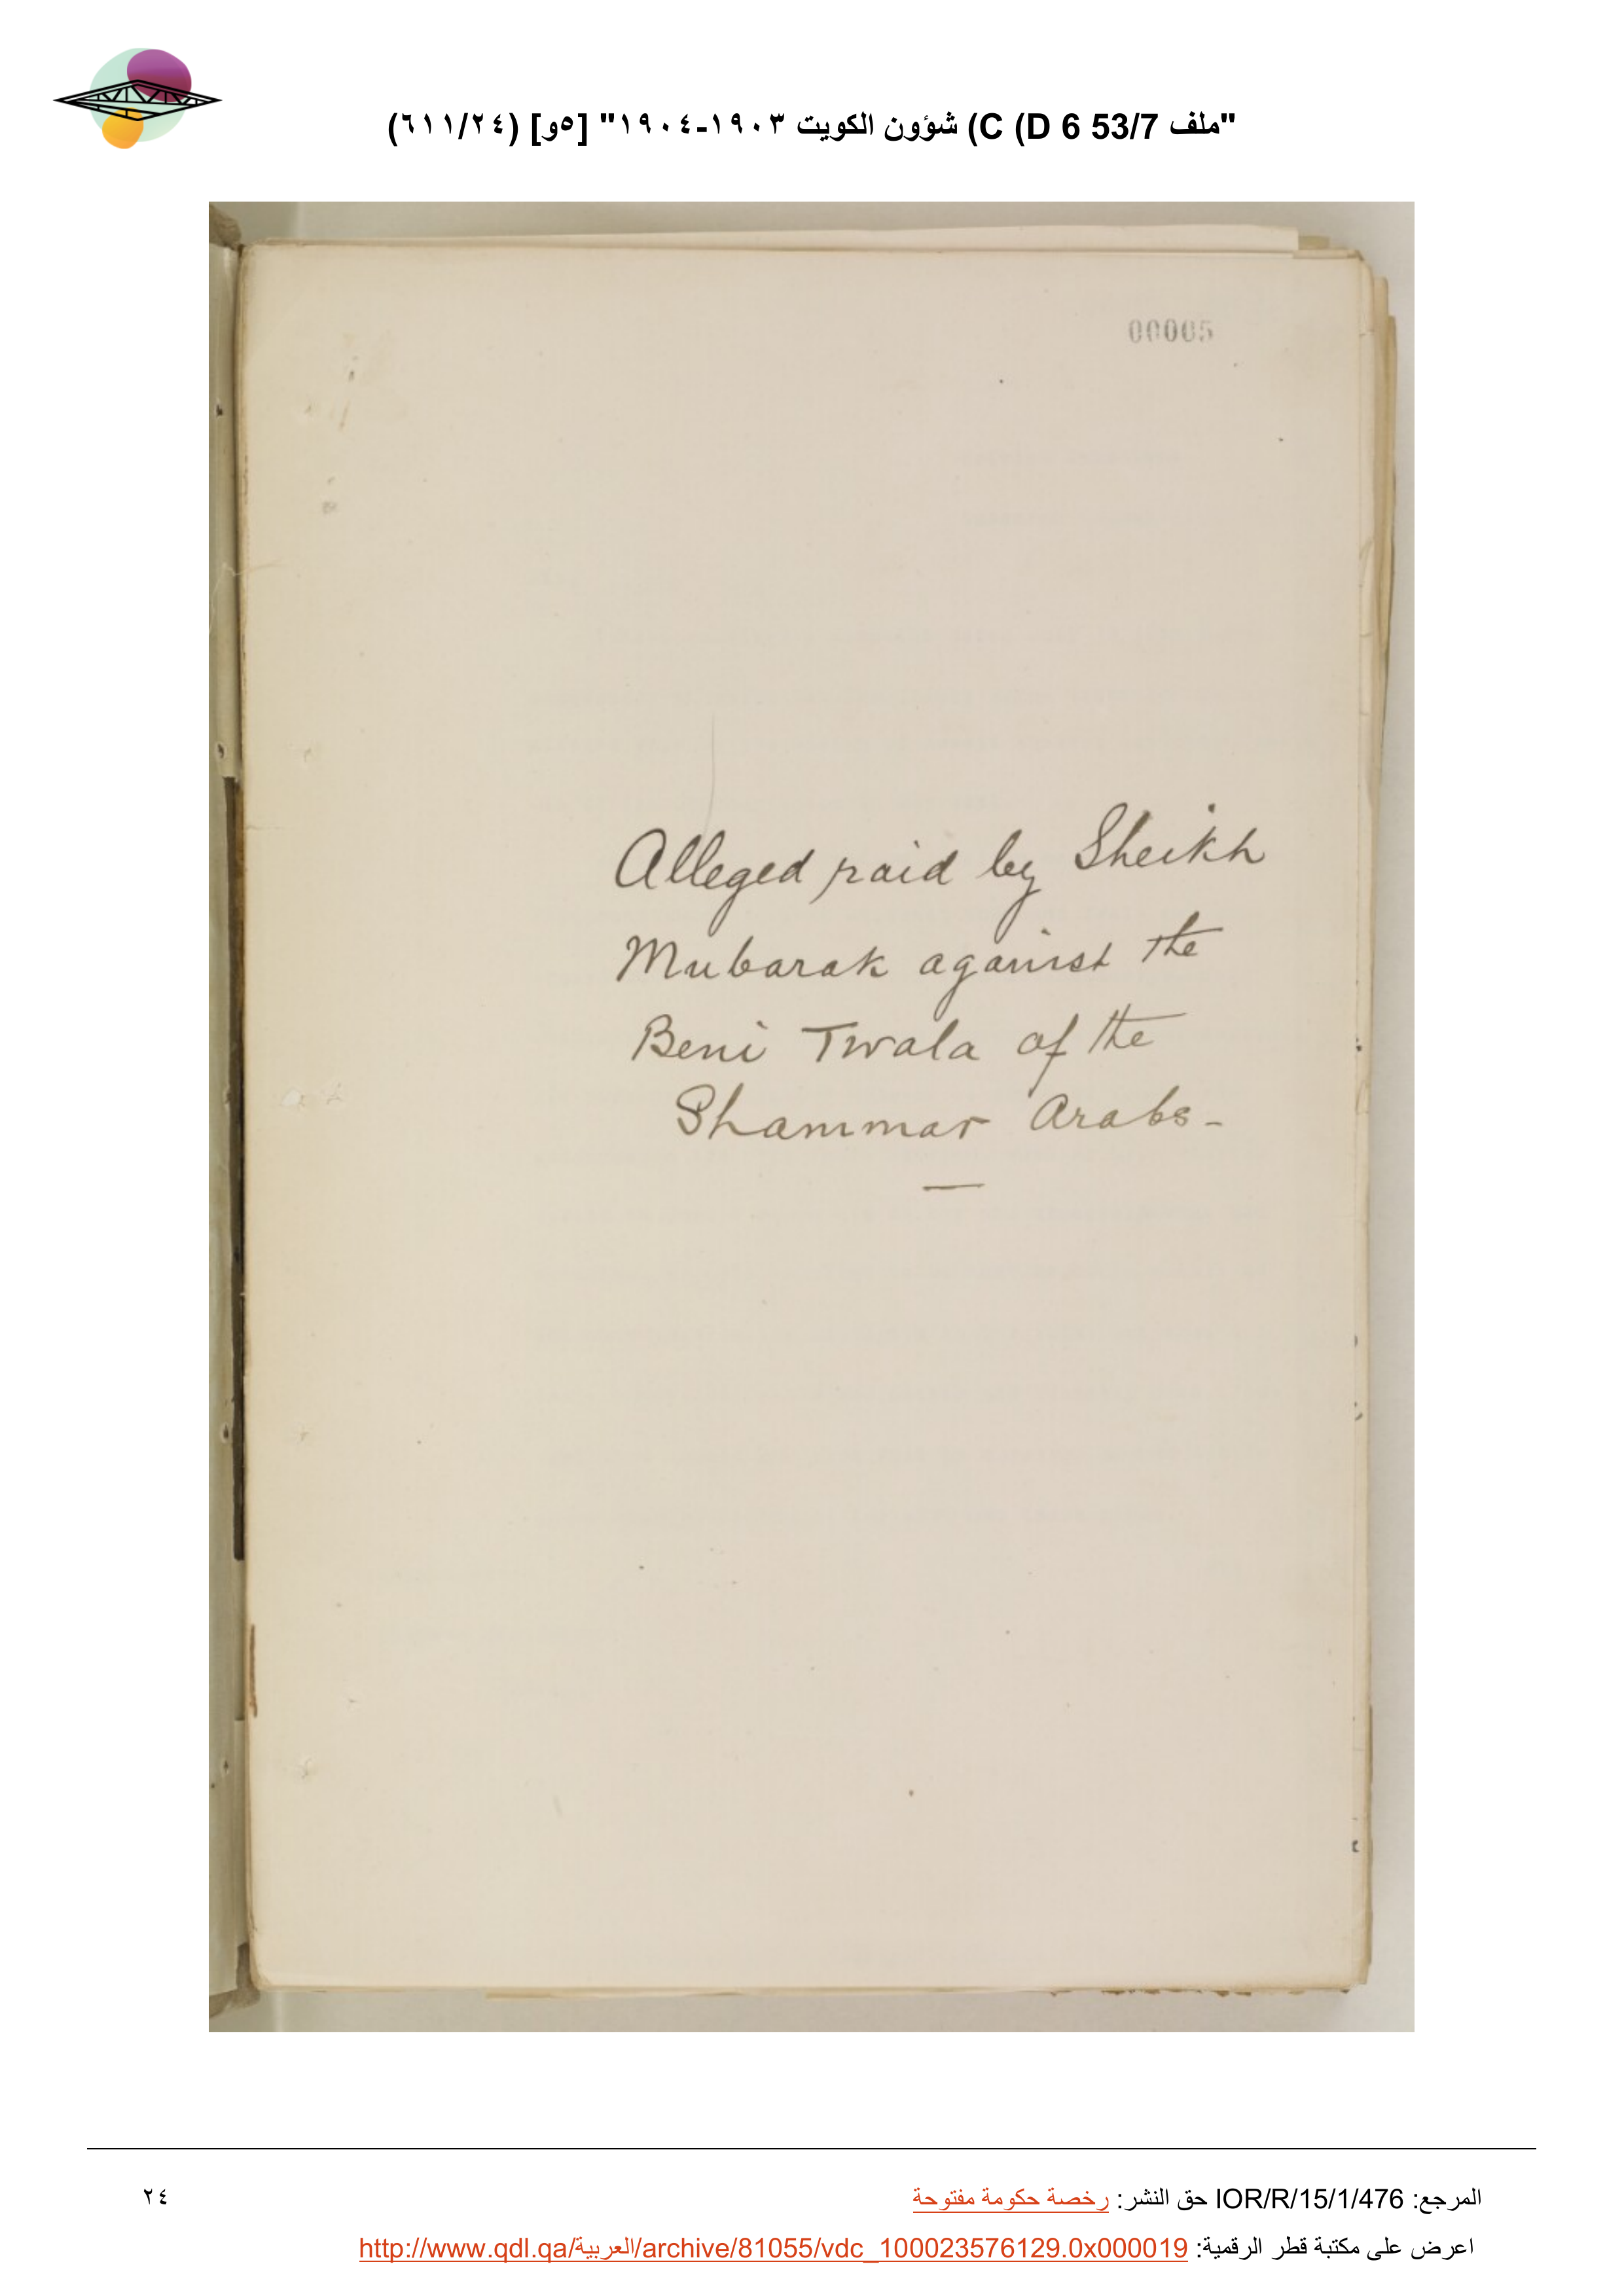 "ملف 53/7 D 6) C) شؤون الكويت ١٩٠٣-١٩٠٤" [٥و] (٦١١/٢٤)
00005
Alleged raid by Sheikh
Mubarak against the
Beni Twala of the
Shammar Arabs -
المرجع: IOR/R/15/1/476 حق النشر: رخصة حكومة مفتوحة
٢٤
اعرض على مكتبة قطر الرقمية: http://www.qdl.qa/العربية/archive/81055/vdc_100023576129.0x000019